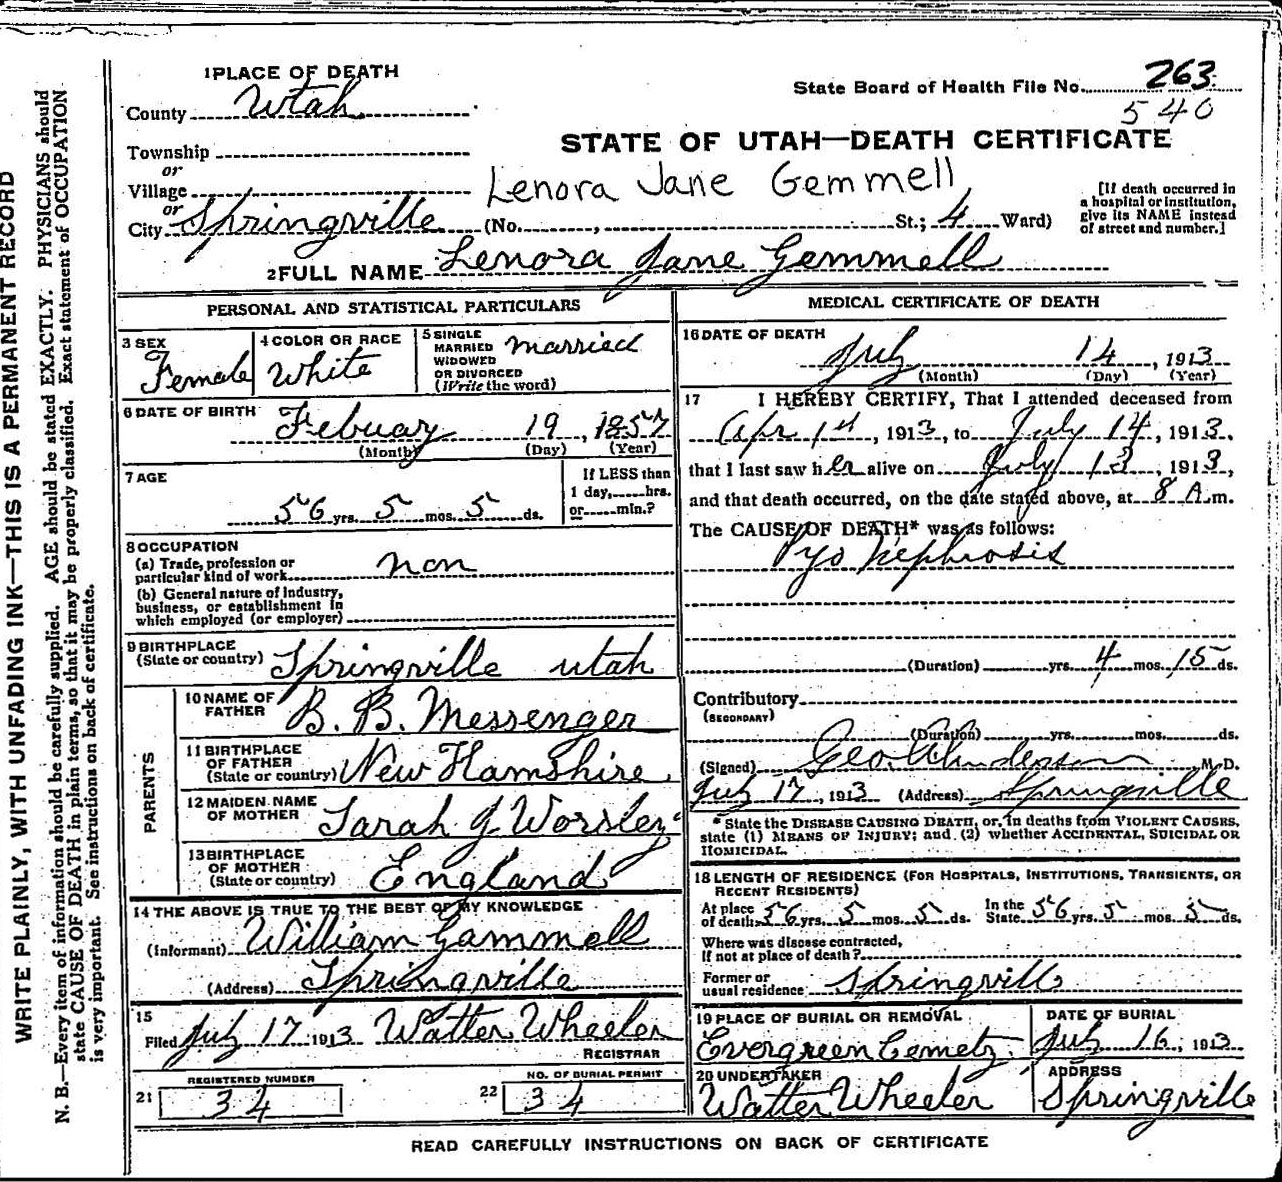 WRITE PLAINLY, WITH UNFADING INK—THIS IS A PERMANENT RECORD
N. B.—Every item of information should be carefully supplied. AGE should be stated EXACTLY. PHYSICIANS should
state CAUSE OF DEATH in plain terms, so that it may be properly classified. Exact statement of OCCUPATION
is very important. See instructions on back of certificate.
1 PLACE OF DEATH
State Board of Health File No. 263
County Utah
540
STATE OF UTAH—DEATH CERTIFICATE
Township
or
Village
Lenora Jane Gemmell
or
City Springville (No. , St.; 4 Ward)
[If death occurred in
a hospital or institution,
give its NAME instead
of street and number.]
2 FULL NAME Lenora Jane Gemmell
PERSONAL AND STATISTICAL PARTICULARS
3 SEX
Female
4 COLOR OR RACE
White
5 SINGLE
MARRIED
WIDOWED
OR DIVORCED
(Write the word)
married
6 DATE OF BIRTH
Febuary 19, 1857
(Month) (Day) (Year)
7 AGE
56 yrs. 5 mos. 5 ds.
If LESS than
1 day, hrs.
or min.?
8 OCCUPATION
(a) Trade, profession or
particular kind of work non
(b) General nature of Industry,
business, or establishment in
which employed (or employer)
9 BIRTHPLACE
(State or country) Springville utah
PARENTS
10 NAME OF
FATHER B. B. Messenger
11 BIRTHPLACE
OF FATHER
(State or country) New Hamshire
12 MAIDEN NAME
OF MOTHER Sarah J Worsley
13 BIRTHPLACE
OF MOTHER
(State or country) England
14 THE ABOVE IS TRUE TO THE BEST OF MY KNOWLEDGE
(Informant) William Gammell
(Address) Springville
15
Filed July 17 1913 Walter Wheeler
REGISTRAR
21
REGISTERED NUMBER
34
22
NO. OF BURIAL PERMIT
34
MEDICAL CERTIFICATE OF DEATH
16 DATE OF DEATH
July 14, 1913
(Month) (Day) (Year)
17 I HEREBY CERTIFY, That I attended deceased from
Apr 1st, 1913, to July 14, 1913,
that I last saw her alive on July 13, 1913,
and that death occurred, on the date stated above, at 8 A.m.
The CAUSE OF DEATH* was as follows:
Pyo Nephrosis
(Duration) yrs. 4 mos. 15 ds.
Contributory
(SECONDARY)
(Duration) yrs. mos. ds.
(Signed) Geo. Anderson M. D.
July 17, 1913 (Address) Springville
* State the DISEASE CAUSING DEATH, or, in deaths from VIOLENT CAUSES,
state (1) MEANS OF INJURY; and (2) whether ACCIDENTAL, SUICIDAL OR
HOMICIDAL.
18 LENGTH OF RESIDENCE (FOR HOSPITALS, INSTITUTIONS, TRANSIENTS, OR
RECENT RESIDENTS)
At place
of death 56 yrs. 5 mos. 5 ds.
In the
State 56 yrs. 5 mos. 5 ds.
Where was disease contracted,
if not at place of death?
Former or
usual residence Springville
19 PLACE OF BURIAL OR REMOVAL
Evergreen Cemety.
DATE OF BURIAL
July 16, 1913
20 UNDERTAKER
Walter Wheeler
ADDRESS
Springville
READ CAREFULLY INSTRUCTIONS ON BACK OF CERTIFICATE